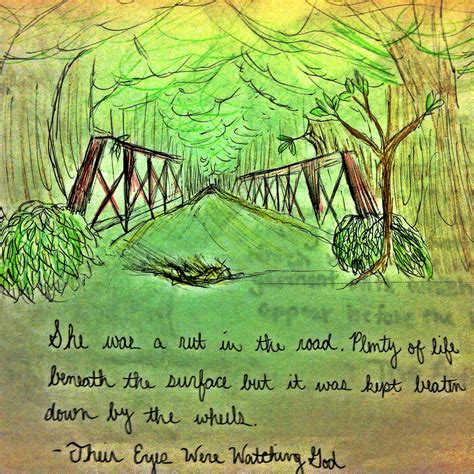 She was a rut in the road. Plenty of life
beneath the surface but it was kept beaten
down by the wheels.
- Their Eyes Were Watching God
appear before the